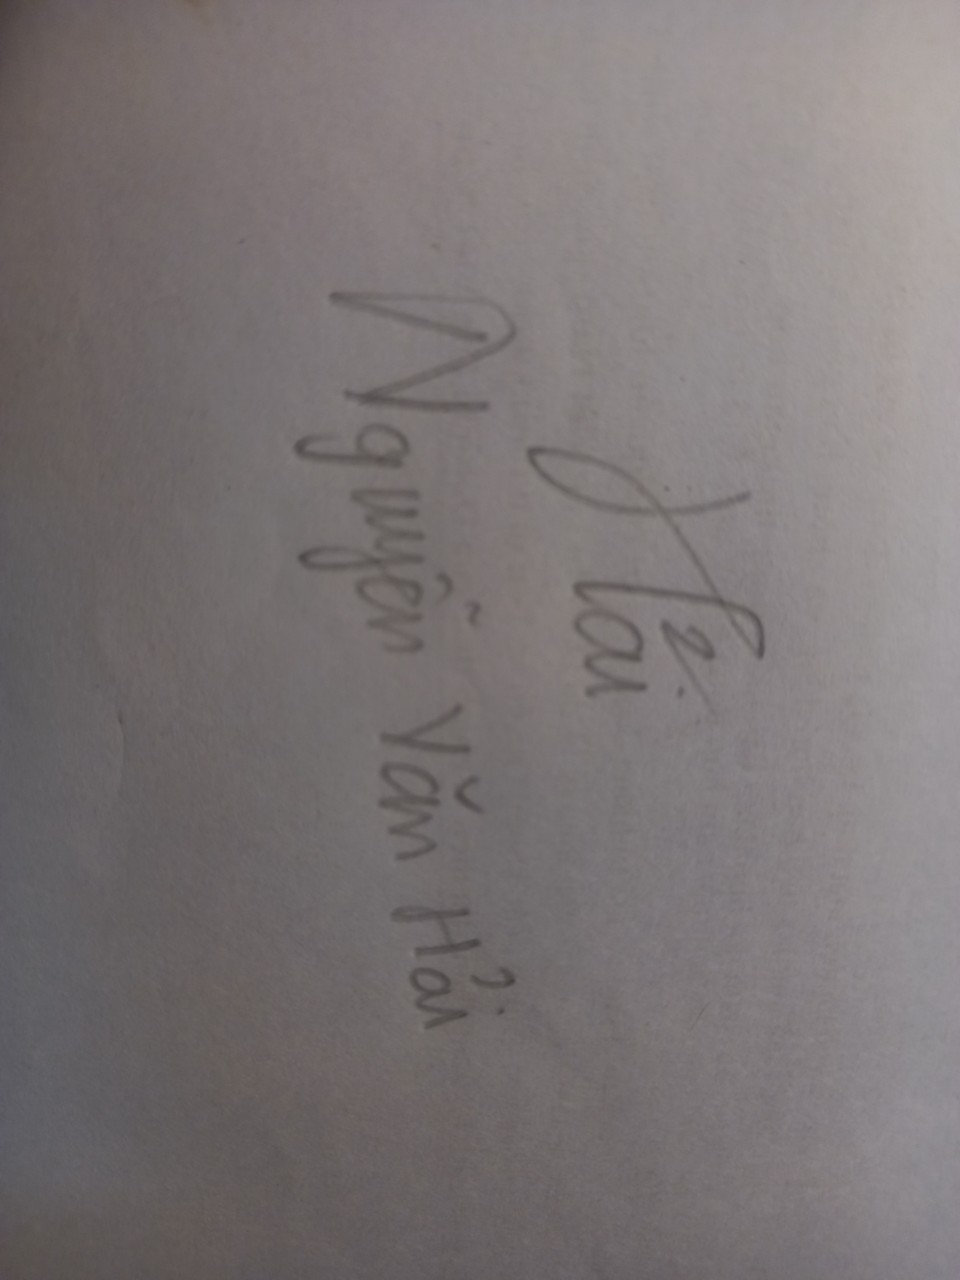 Hải
Nguyễn Văn Hải